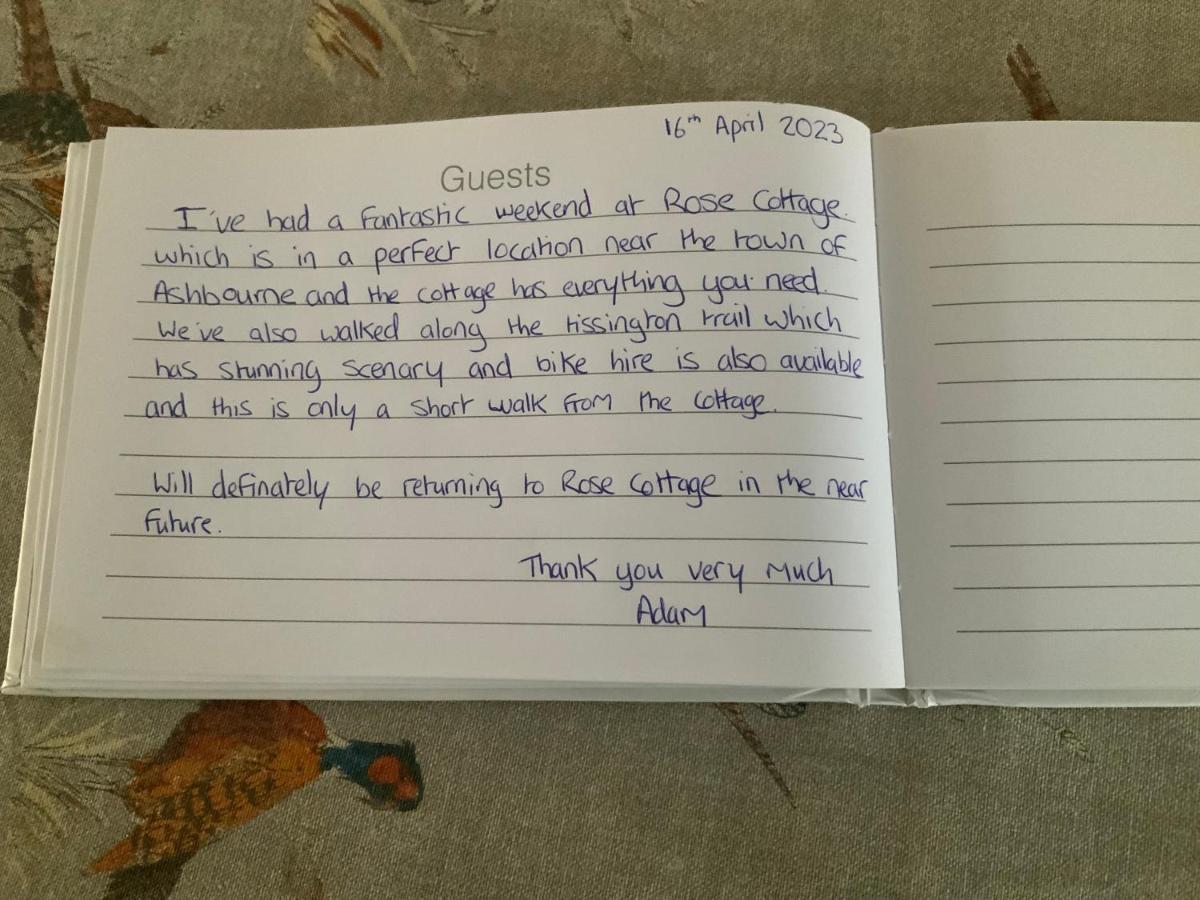 16th April 2023
Guests
I've had a fantastic weekend at Rose Cottage.
which is in a perfect location near the town of
Ashbourne and the cottage has everything you need.
We've also walked along the tissington trail which
has stunning scenary and bike hire is also available
and this is only a short walk from the cottage.
Will definately be returning to Rose Cottage in the near
future.
Thank you very much
Adam